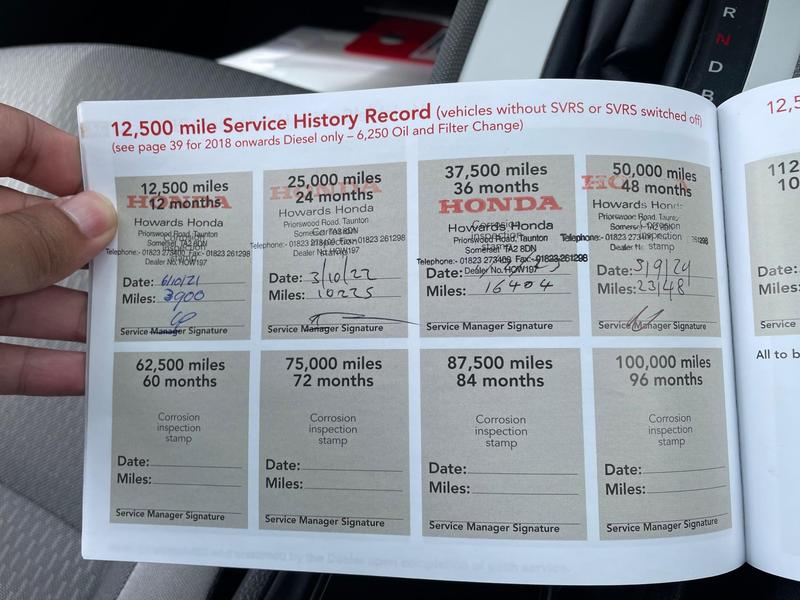 R
N
D
B
12,500 mile Service History Record (vehicles without SVRS or SVRS switched off)
(see page 39 for 2018 onwards Diesel only – 6,250 Oil and Filter Change)
12,500 miles
12 months
HONDA
Howards Honda
Priorswood Road, Taunton
Somerset TA2 8DN
Telephone:- 01823 273400 Fax:-01823 261298
Dealer No: HOW197
Date: 6/10/21
Miles: 3900
Service Manager Signature
25,000 miles
24 months
HONDA
Howards Honda
Priorswood Road, Taunton
Somerset TA2 8DN
Telephone:- 01823 273400 Fax:-01823 261298
Dealer No: HOW197
Date: 3/10/22
Miles: 10225
Service Manager Signature
37,500 miles
36 months
HONDA
Howards Honda
Corrosion
Priorswood Road, Taunton
Somerset TA2 8DN
Telephone:- 01823 273400 Fax:-01823 261298
Dealer No: HOW197
Date:
Miles: 16404
Service Manager Signature
50,000 miles
48 months
Howards Honda
Corrosion
Priorswood Road,
inspection
stamp
Date: 3/9/24
Miles: 23148
Service Manager Signature
62,500 miles
60 months
Corrosion
inspection
stamp
Date:
Miles:
Service Manager Signature
75,000 miles
72 months
Corrosion
inspection
stamp
Date:
Miles:
Service Manager Signature
87,500 miles
84 months
Corrosion
inspection
stamp
Date:
Miles:
Service Manager Signature
100,000 miles
96 months
Corrosion
inspection
stamp
Date:
Miles:
Service Manager Signature
12,5
112
10
Date:
Miles:
Service
All to b